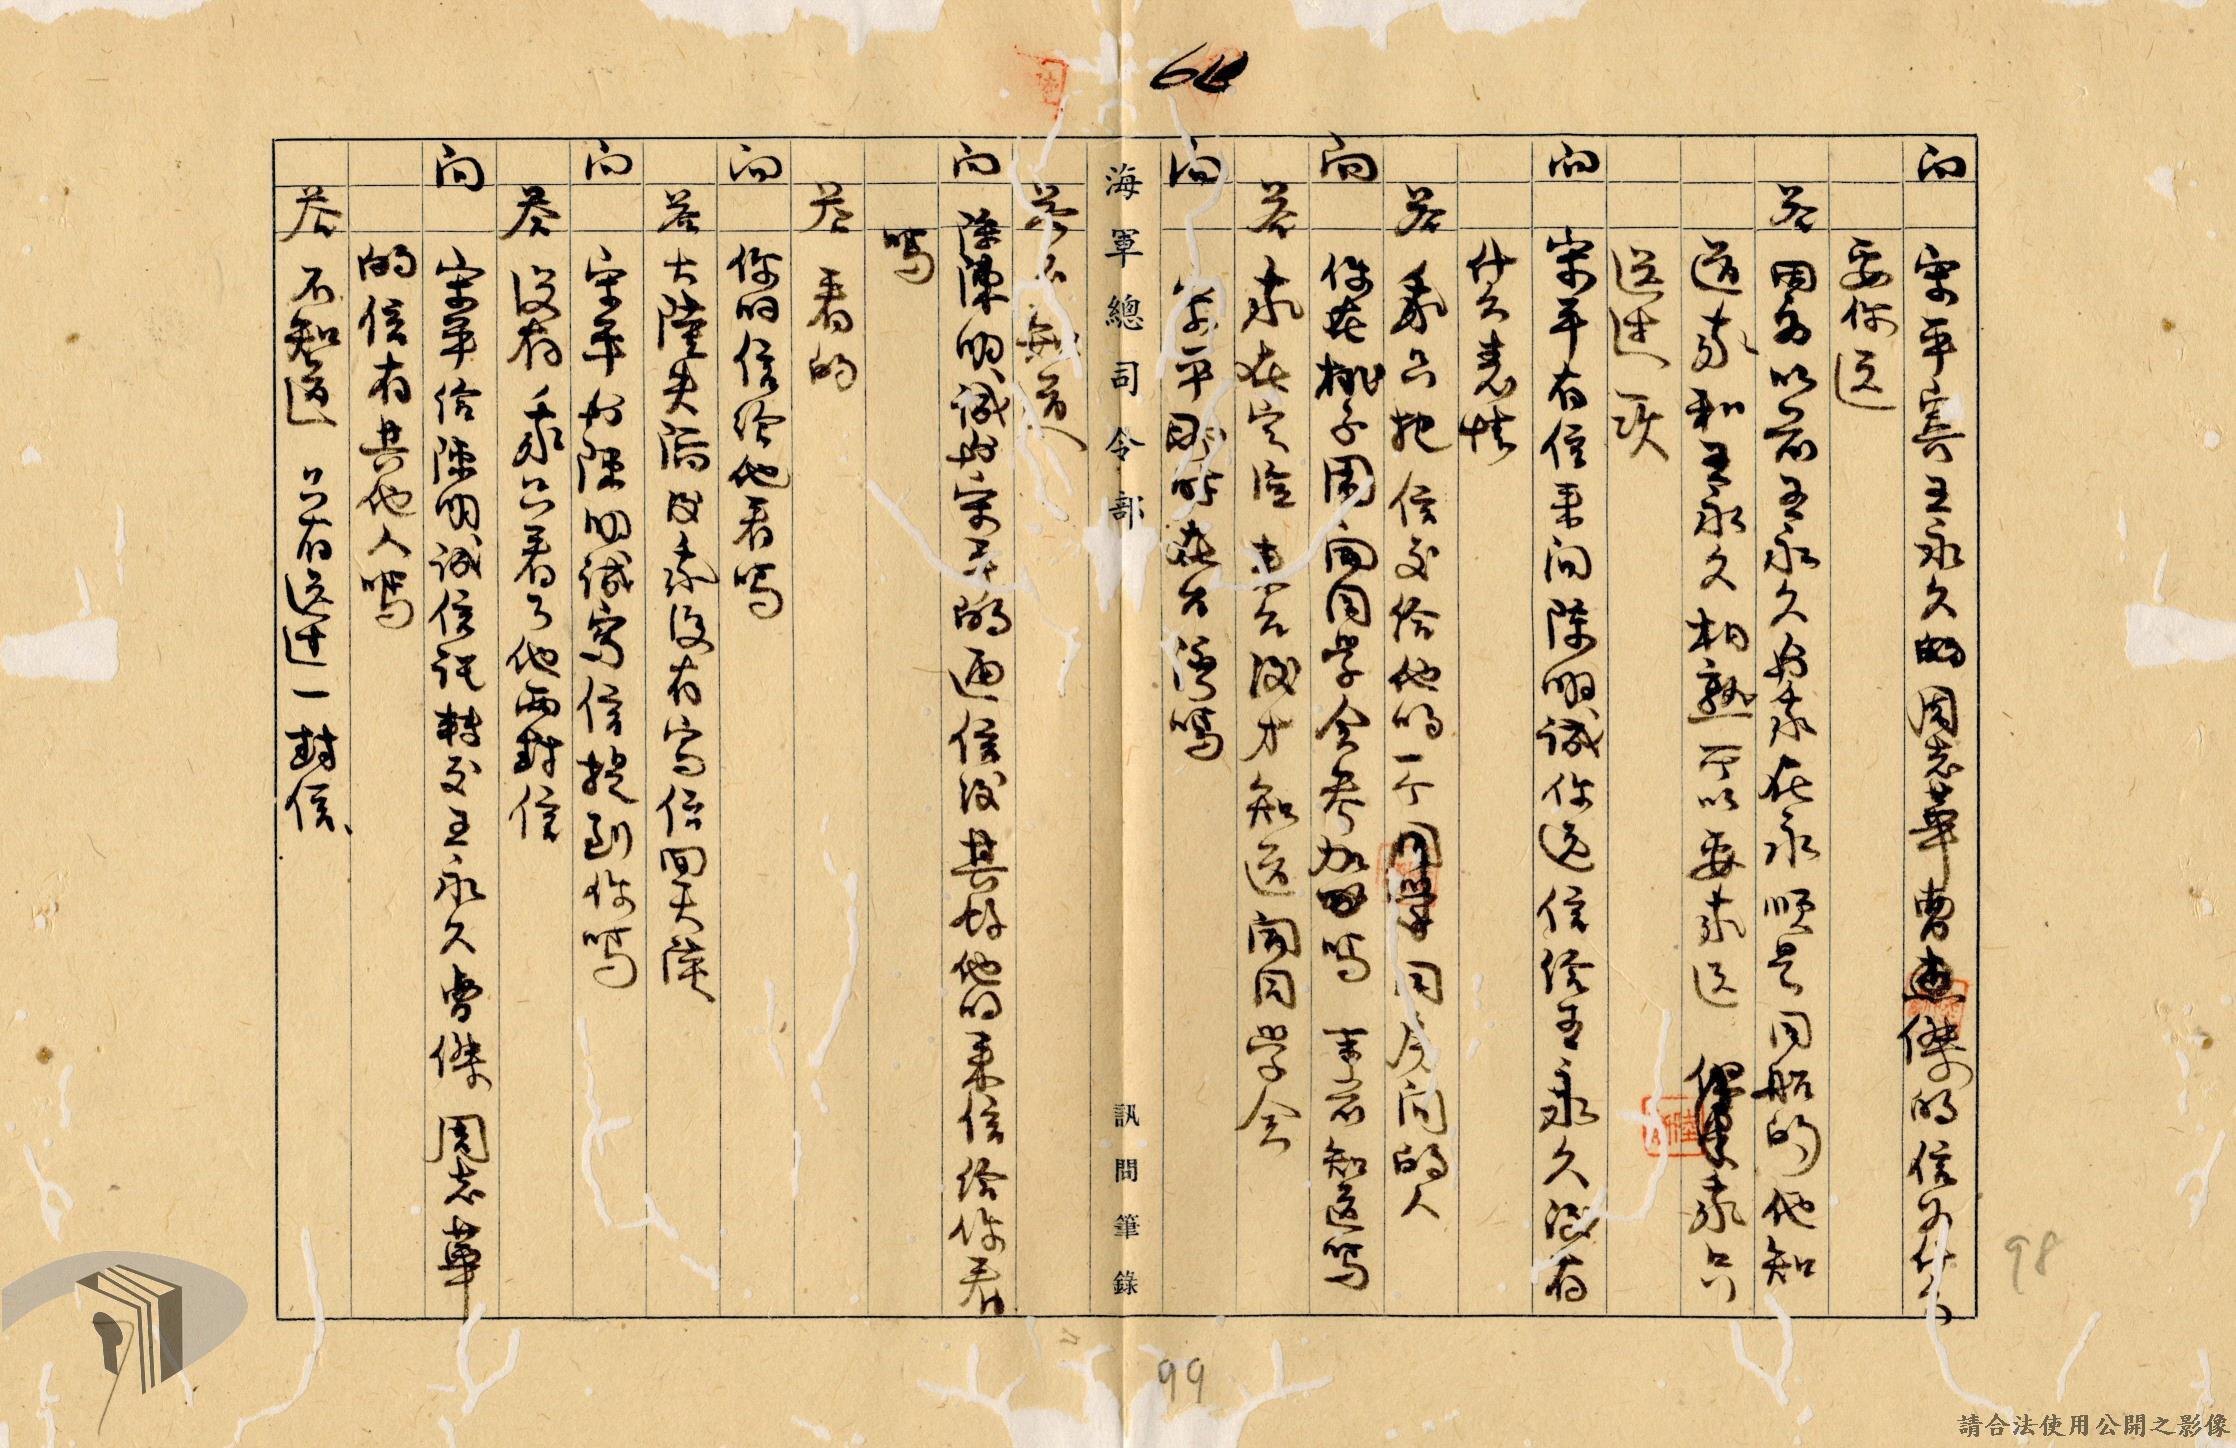 問 宋平寄王永久的周志華曹傑的信為什么
要你送
答 因為以前王永久與我在永順是同船的他知
道我和王永久相熟所以要我送 我只
送過一次
問 宋平有信來向陳明誠你送信給王永久沒有
什么表情
答 我只把信交給他的一个同房间的人
問 你在桃子園面同學會参加過嗎 事前知道嗎
答 我在定海 來台後才知道同學會
問 宋平現時在台灣嗎
海軍總司令部 訊問筆錄
答 不知道
問 陳明誠與宋平的通信後其給他的來信給你看
嗎
答 看的
問 你的信給他看嗎
答 大陸失陷後我沒有寫信回大陸
問 宋平與陳明誠寫信提到你嗎
答 沒有 我只看了他兩封信
問 宋平給陳明誠信託轉交王永久曹傑 周志華
的信有其他人嗎
答 不知道 只有送過一封信
98
99
請合法使用公開之影像